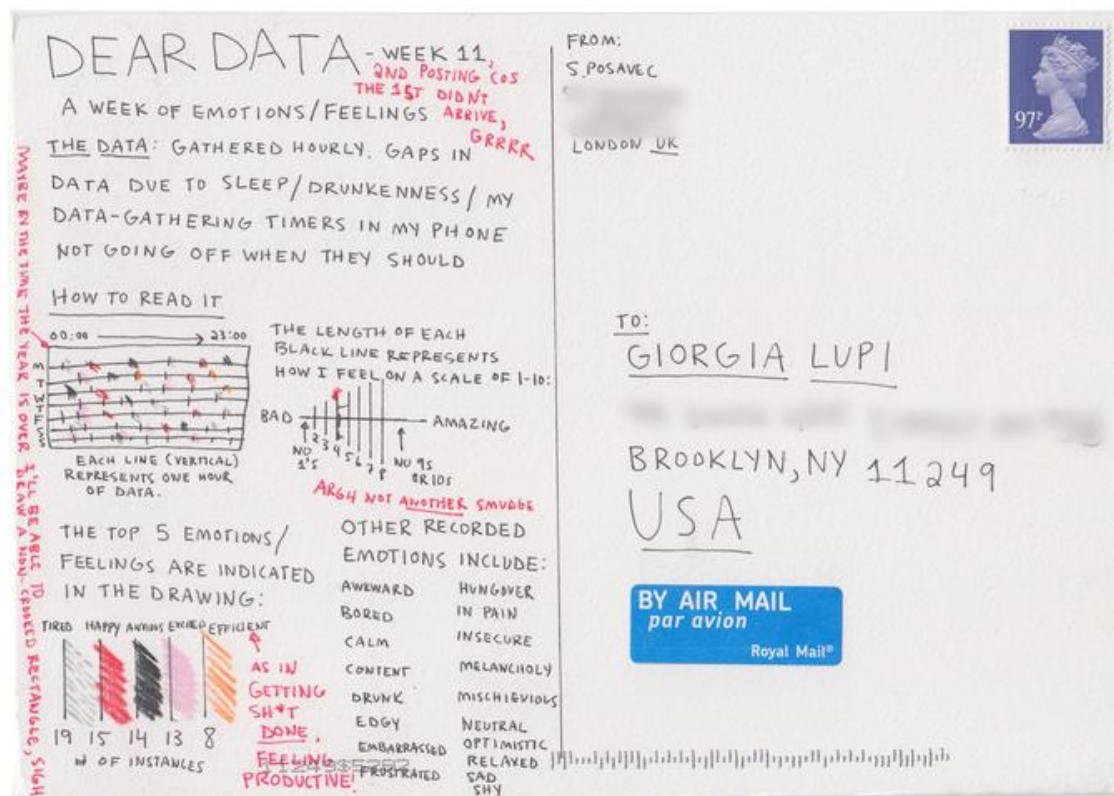 DEAR DATA - WEEK 11,
2ND POSTING COS
THE 1ST DIDNT
ARRIVE,
GRRRR
A WEEK OF EMOTIONS/FEELINGS
THE DATA: GATHERED HOURLY. GAPS IN
DATA DUE TO SLEEP/DRUNKENNESS/MY
DATA-GATHERING TIMERS IN MY PHONE
NOT GOING OFF WHEN THEY SHOULD
HOW TO READ IT
00:00 23:00
M
T
W
T
F
S
S
EACH LINE (VERTICAL)
REPRESENTS ONE HOUR
OF DATA.
THE LENGTH OF EACH
BLACK LINE REPRESENTS
HOW I FEEL ON A SCALE OF 1-10:
BAD AMAZING
2 3 4 5 6 7 8
NO
1'S
NO 9S
OR 10S
ARGH NOT ANOTHER SMUDGE
MAYBE BY THE TIME THE YEAR IS OVER I'LL BE ABLE TO
DRAW A NON-CROOKED RECTANGLE, SIGH
THE TOP 5 EMOTIONS/
FEELINGS ARE INDICATED
IN THE DRAWING:
TIRED HAPPY ANXIOUS EXCITED EFFICIENT
19 15 14 13 8
# OF INSTANCES
AS IN
GETTING
SH*T
DONE,
FEELING
PRODUCTIVE!
OTHER RECORDED
EMOTIONS INCLUDE:
AWKWARD
BORED
CALM
CONTENT
DRUNK
EDGY
EMBARRASSED
FRUSTRATED
HUNGOVER
IN PAIN
INSECURE
MELANCHOLY
MISCHIEVIOUS
NEUTRAL
OPTIMISTIC
RELAXED
SAD
SHY
FROM:
S. POSAVEC
LONDON UK
97P
TO:
GIORGIA LUPI
BROOKLYN, NY 11249
USA
BY AIR MAIL
par avion
Royal Mail®